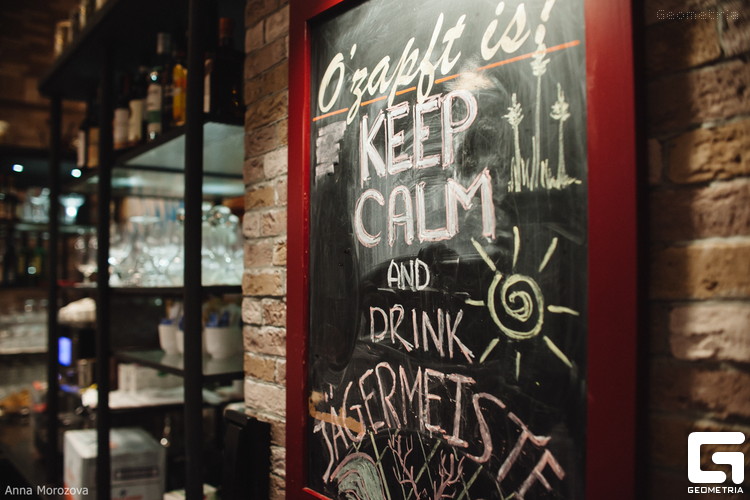 Geometria
O'zapft is!
KEEP
CALM
AND
DRINK
JÄGERMEISTE
Anna Morozova
GEOMETRIA